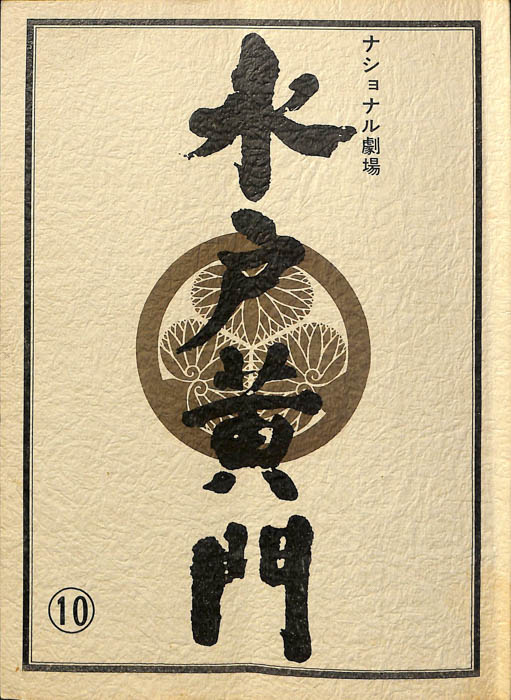 ナショナル劇場
水戸黄門
⑩